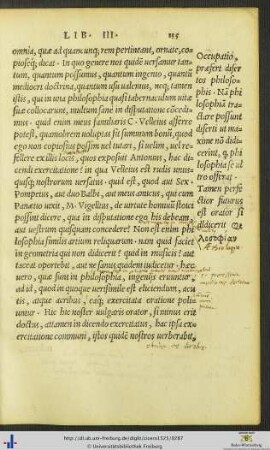 LIB. III.
omnia, quæ ad quamcunq; rem pertineant, ornate, co-
piose'q; dicat. In quo genere nos quidē versamur tan-
tum, quantum possumus, quantum ingenio, quantū
mediocri doctrina, quantum usu valemus, neq; tamen
istis, qui in una philosophia quasi tabernaculum uitæ
suæ collocarunt, multum sane in disputatione concedi-
mus. quid enim meus familiaris C. Velleius afferre
potest, quamobrem uoluptas sit summum bonū, quod
ego non copiosius possim uel tutari, si uelim, uel re-
fellere ex illis locis, quos exposuit Antonius, hac di-
cendi exercitatione? in qua Velleius est rudis unus-
quisq; nostrarum versatus. quid est, quod aut Sex.
Pompeius, aut duo Balbi, aut meus amicus, qui cum
Panætio uixit, M. Vigellius, de uirtute hominū stoici
possint dicere, qua in disputatione ego his debeam,
aut uestrum quisquam concedere? Non est enim phi-
losophia similis artium reliquarum. nam quid faciet
in geometria qui non didicerit? quid in musicis? aut
taceat oportebit, aut ne sanus quidem iudicetur. hæc
uero, quæ sunt in philosophia, ingenijs eruuntur,
ad id, quod in quoque uerisimile est eliciendum, acu-
tis, atque acribus, eaq; exercitata oratione poliun-
untur. Hic hic noster uulgaris orator, si minus erit
doctus, attamen in dicendo exercitatus, hac ipsa ex-
ercitatione communi, istos quidē nostros uerberabit,
Occupatio,
præsert diser
tos philoso-
phis. Nā phi
losophiā tra
ctare possunt
diserti ut ma
xime nō didi
cerint, q phi
losophia se al
tro offerat.
Tamen perfe
ctior futurus
est orator si
didicerit
http://dl.ub.uni-freiburg.de/diglit/cicero1521/0287
© Universitätsbibliothek Freiburg